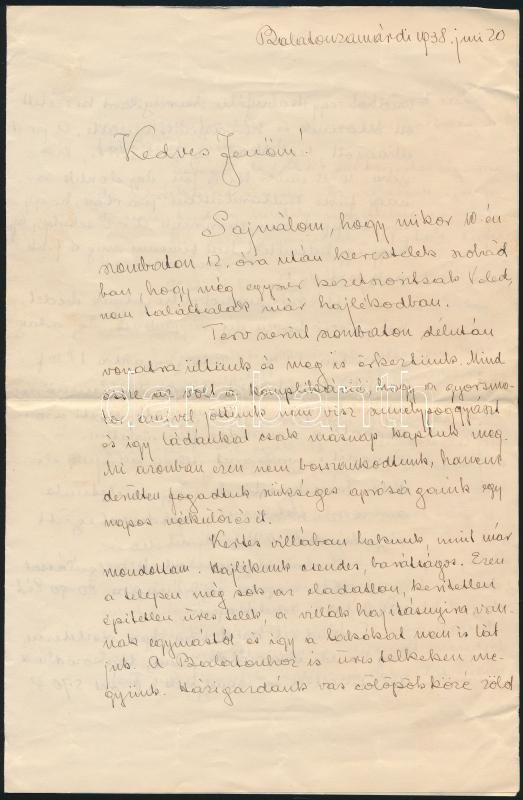 Balatonszamárdi 1938. juni 20
Kedves Jenőm!
Sajnálom, hogy mikor 10.-én
szombaton 12. óra után kerestelek szobád
ban, hogy még egyszer kezet szorítsak Veled,
nem találtalak már hajlékodban.
Terv szerint szombaton délután
vonatra ültünk és meg is érkeztünk. Mind
össze az volt a komplikáció, hogy a gyorsmo-
tor amivel jöttünk nem visz személypoggyászt
és így ládánkat csak másnap kaptuk meg.
Mi azonban ezen nem bosszankodtunk, hanem
derülten fogadtuk szükséges apróságaink egy
napos nélkülözését.
Kertes villában lakunk, mint már
mondottam. Hajlékunk csendes, barátságos. Ezen
a telepen még sok az eladatlan, kerítetlen
építetlen üres telek, a villák hajításnyira van-
nak egymástól és így a lakókat nem is lát
juk. A Balatonhoz is üres telkeken me-
gyünk. Házigazdánk vas cölöpök közé zöld
darabanth